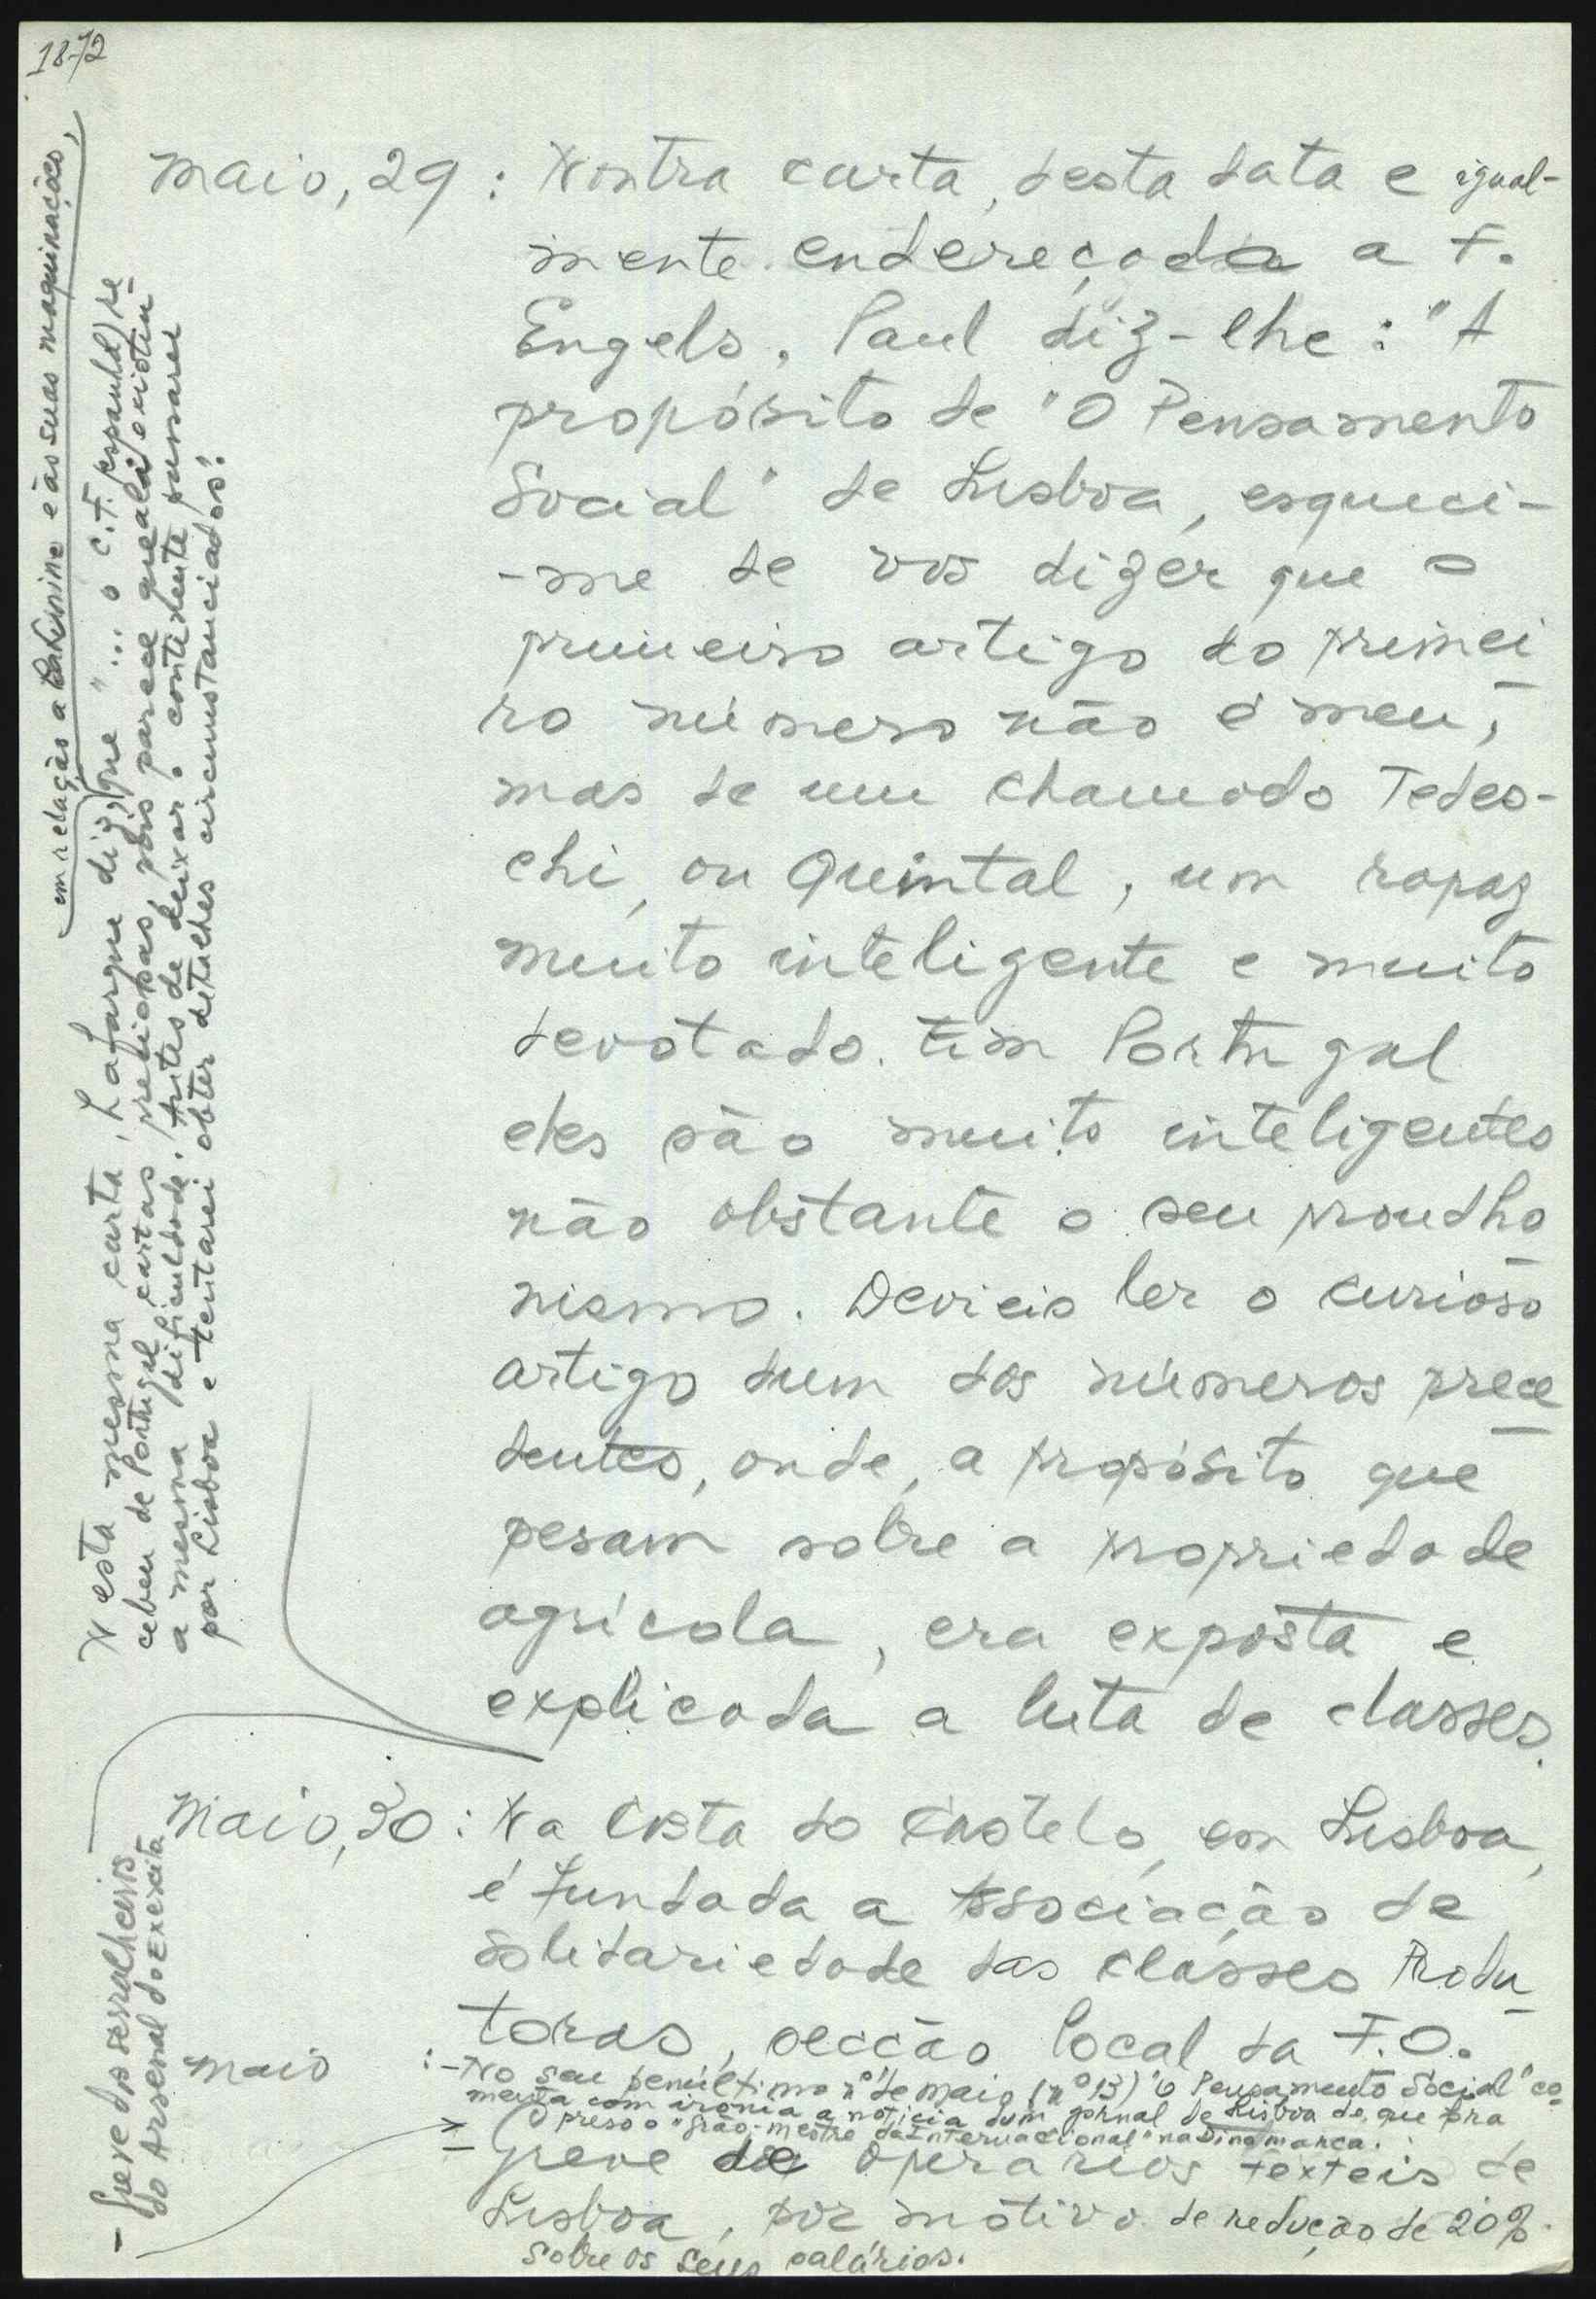 1872
Maio, 29 : Noutra carta, desta data e igual-
mente endereçada a F.
Engels, Paul diz-lhe: "A
propósito de "O Pensamento
Social" de Lisboa, esqueci-
-me de vos dizer que o
primeiro artigo do primei
ro número não é meu,
mas de um chamado Tedes-
chi, ou Quintal, um rapaz
muito inteligente e muito
devotado. Em Portugal
eles são muito inteligentes
não obstante o seu proudho
nismo. Devieis ler o curioso
artigo dum dos números prece
dentes, onde, a propósito que
pesam sobre a propriedade
agrícola, era exposta e
explicada a luta de classes.
Nesta mesma carta, Lafargue diz, que "... o C.F. espanhol re
cebeu de Portugal cartas preciosas, pois parece que ali existiu
a mesma dificuldade. Antes de deixar o continente passarei
por Lisboa e tentarei obter detalhes circunstanciados".
em relação a Bakunine e às suas maquinações,
Maio, 30 : Na Costa do Castelo, em Lisboa,
é fundada a Associação de
Solidariedade das Classes Produ
toras, secção local da F.O.
Maio : - No seu penúltimo nº de Maio (nº 13) "O Pensamento Social" co
menta com ironia a notícia dum jornal de Lisboa de que fora
preso o "Grão-mestre da Internacional" na Dinamarca.
- Greve de operários têxteis de
Lisboa, por motivo de redução de 20%
sobre os seus salários.
- Greve dos serralheiros
do Arsenal do Exército